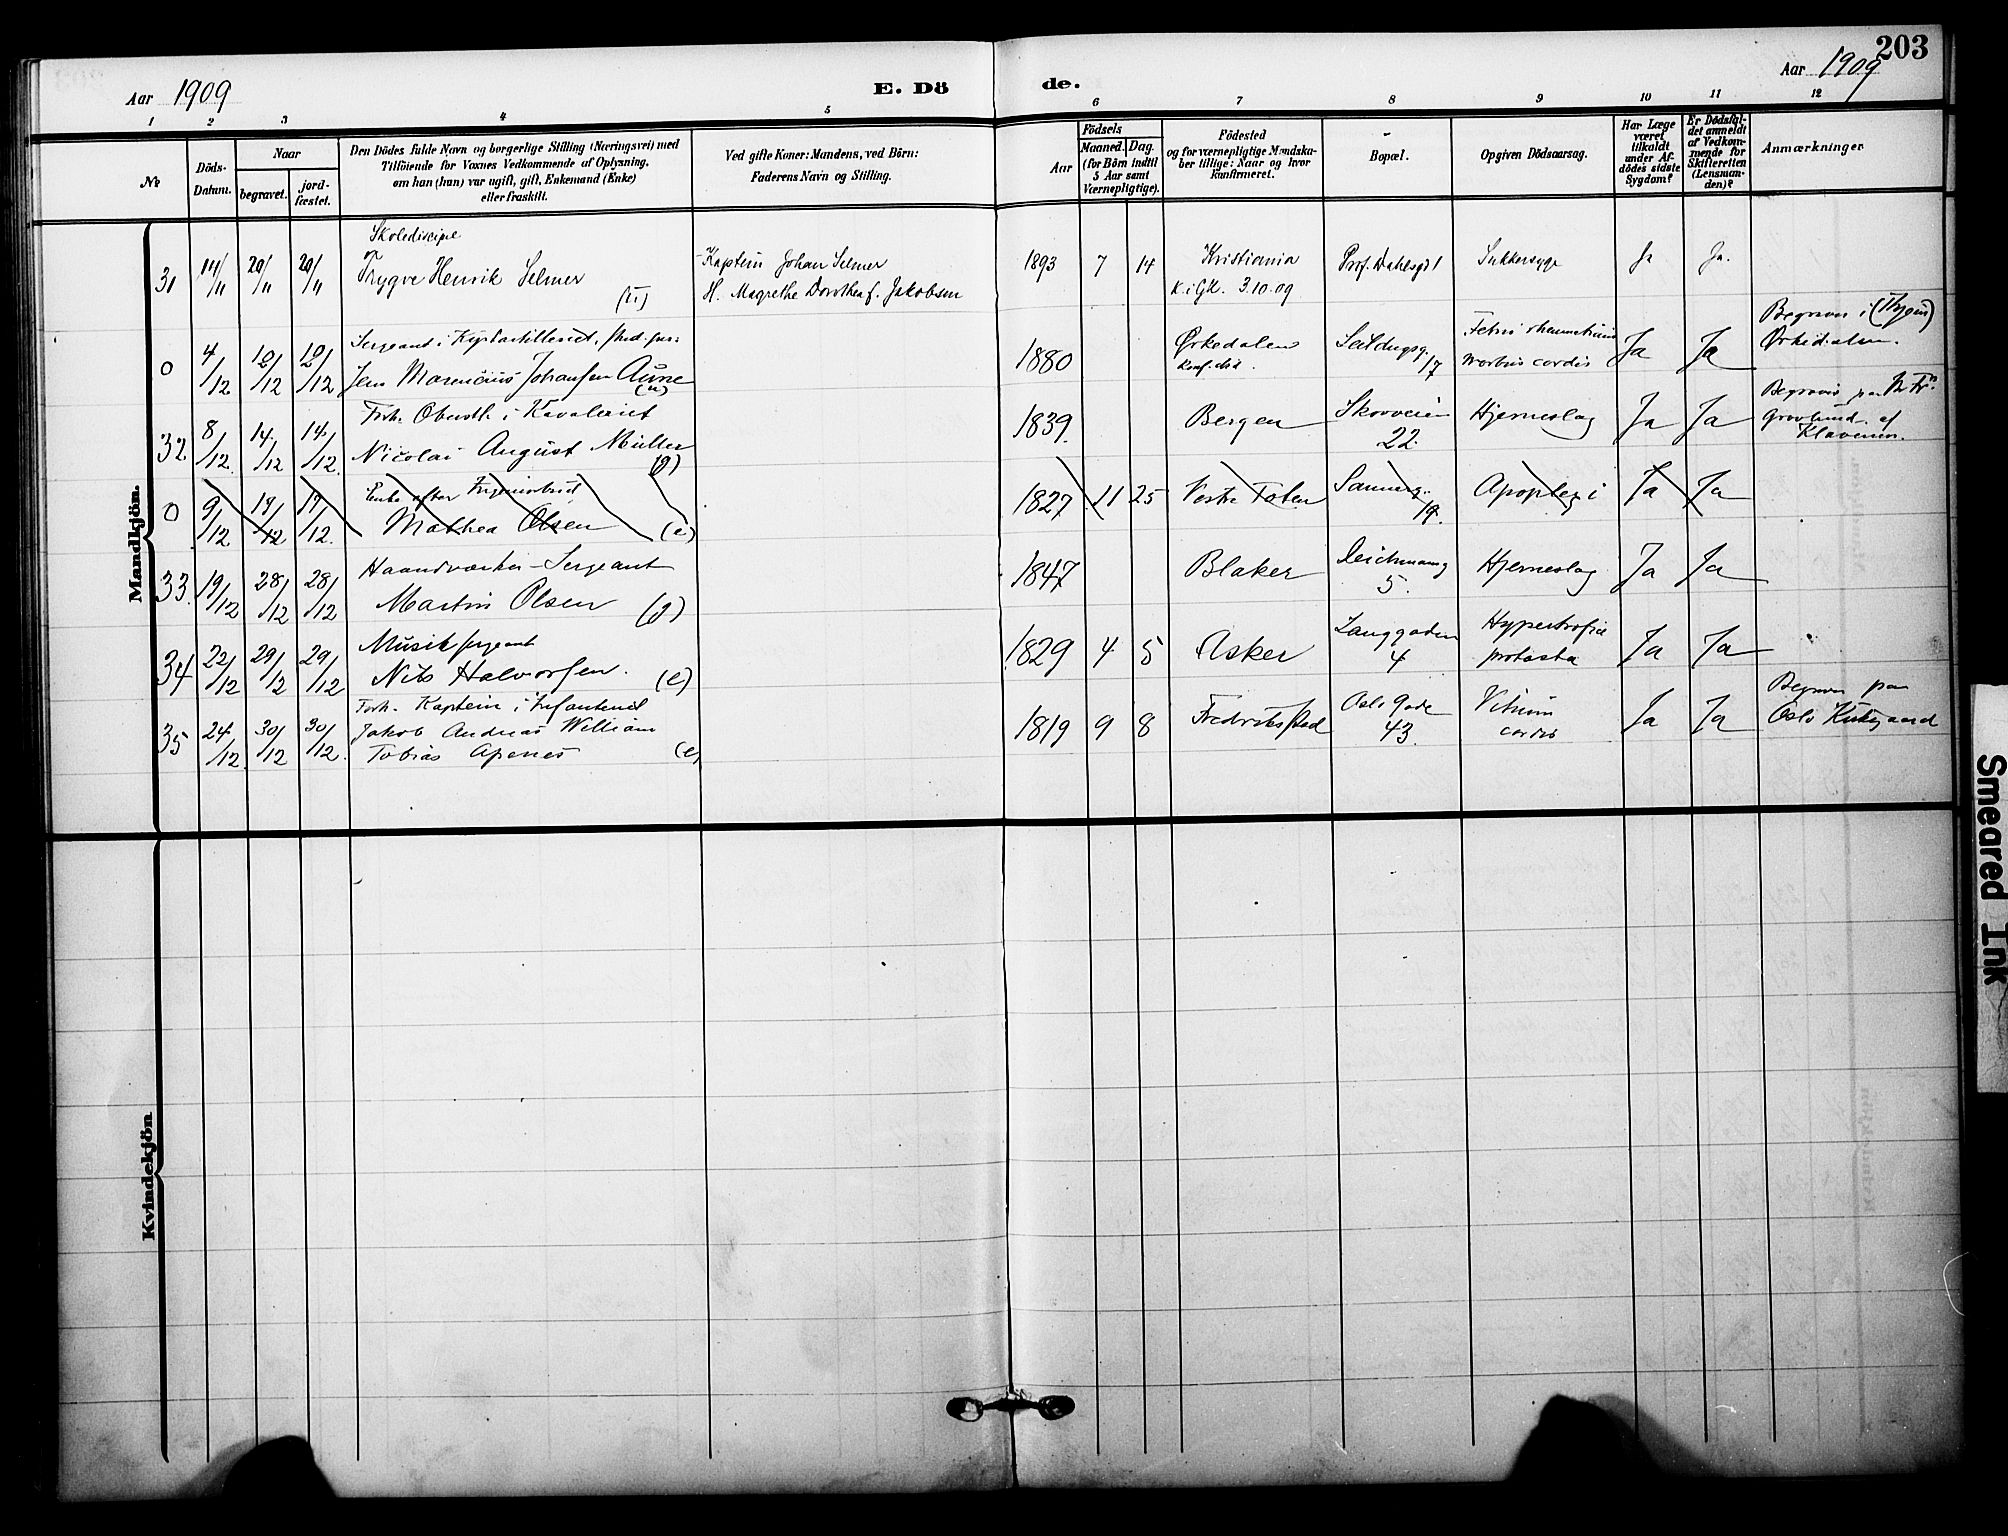 203
Aar 1909
E. Dö
de.
Aar 1909
1 2 3 4 5 6 7 8 9 10 11 12
№
Döds-
Datum.
Naar
begravet.
jord-
fæstet.
Den Dödes fulde Navn og borgerlige Stilling (Næringsvei) med
Tilföiende for Voxnes Vedkommende af Oplysning,
om han (hun) var ugift, gift, Enkemand (Enke)
eller fraskilt.
Ved gifte Koner: Mandens, ved Börn:
Faderens Navn og Stilling.
Födsels
Aar
Maaned.
Dag.
(for Börn indtil
5 Aar samt
Værnepligtige).
Födested
og for værnepligtige Mandska-
ber tillige: Naar og hvor
konfirmeret.
Bopæl.
Opgiven Dödsaarsag.
Har Læge
været
tilkaldt
under Af-
dödes sidste
Sygdom?
Er Dödsfal-
det anmeldt
af Vedkom-
mende for
Skifteretten
(Lensman-
den)?
Anmærkninger
Mandkjön.
Skolediscipel
31 14/11 20/11 20/11 Trygve Henrik Selmer (u) Kaptein Johan Selmer 1893 7 14 Kristiania Prof. Dahlsgd 1 Sukkersyge Ja Ja.
H. Magrethe Dorothea f. Jakobsen K. i GK. 3.10.09
Sergeant i
0 4/12 10/12 10/12 Jens Marenius Johansen Aune (u) 1880 Ørkedalen 17 Febris rheumatica morbus cordis Ja Ja Begraves i Ørkedalen.
Forh. Oberstl. i Kavaleriet
32 8/12 14/12 14/12 Nicolai August Müller (g) 1839 Bergen Skovveien 22. Hjerneslag Ja Ja Begraves paa Gravlund af Klaveness.
Enke efter
0 9/12 14/12 14/12 Mathea Olsen (e) 1827 11 25 Vestre Toten Sannerg. 19. Apoplexi Ja Ja
Haandværker-Sergeant
33. 19/12 28/12 28/12 Martin Olsen (g) 1847 Blaker Deichmansg 5. Hjerneslag Ja Ja
Musiksergeant
34 22/12 29/12 29/12 Nils Halvorsen. (e) 1829 4 5 Asker Langgaden 4 Hypertrofia prostata Ja Ja
Forh. Kaptein i Infanteriet
35 24/12. 30/12 30/12. Jakob Andreas William 1819 9 8 Fredrikstad Oslo Gade 43. Vitium cordis Ja Ja Begraves paa Oslo Kirkegaard
Tobias Apenes (e)
Kvindekjön
Smeared Ink